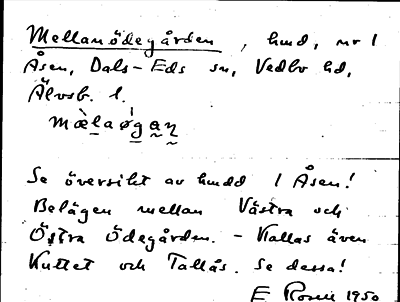 Mellanödegården, hmd, nr 1
Åsen, Dals-Eds sn, Vedbo hd,
Älvsb. l.
mæ̀laǿgaṇ
Se översikt av hmdd i Åsen!
Belägen mellan Västra och
Östra Ödegården. - Kallas även
Kuttet och Tallås. Se dessa!
E Rosell 1950